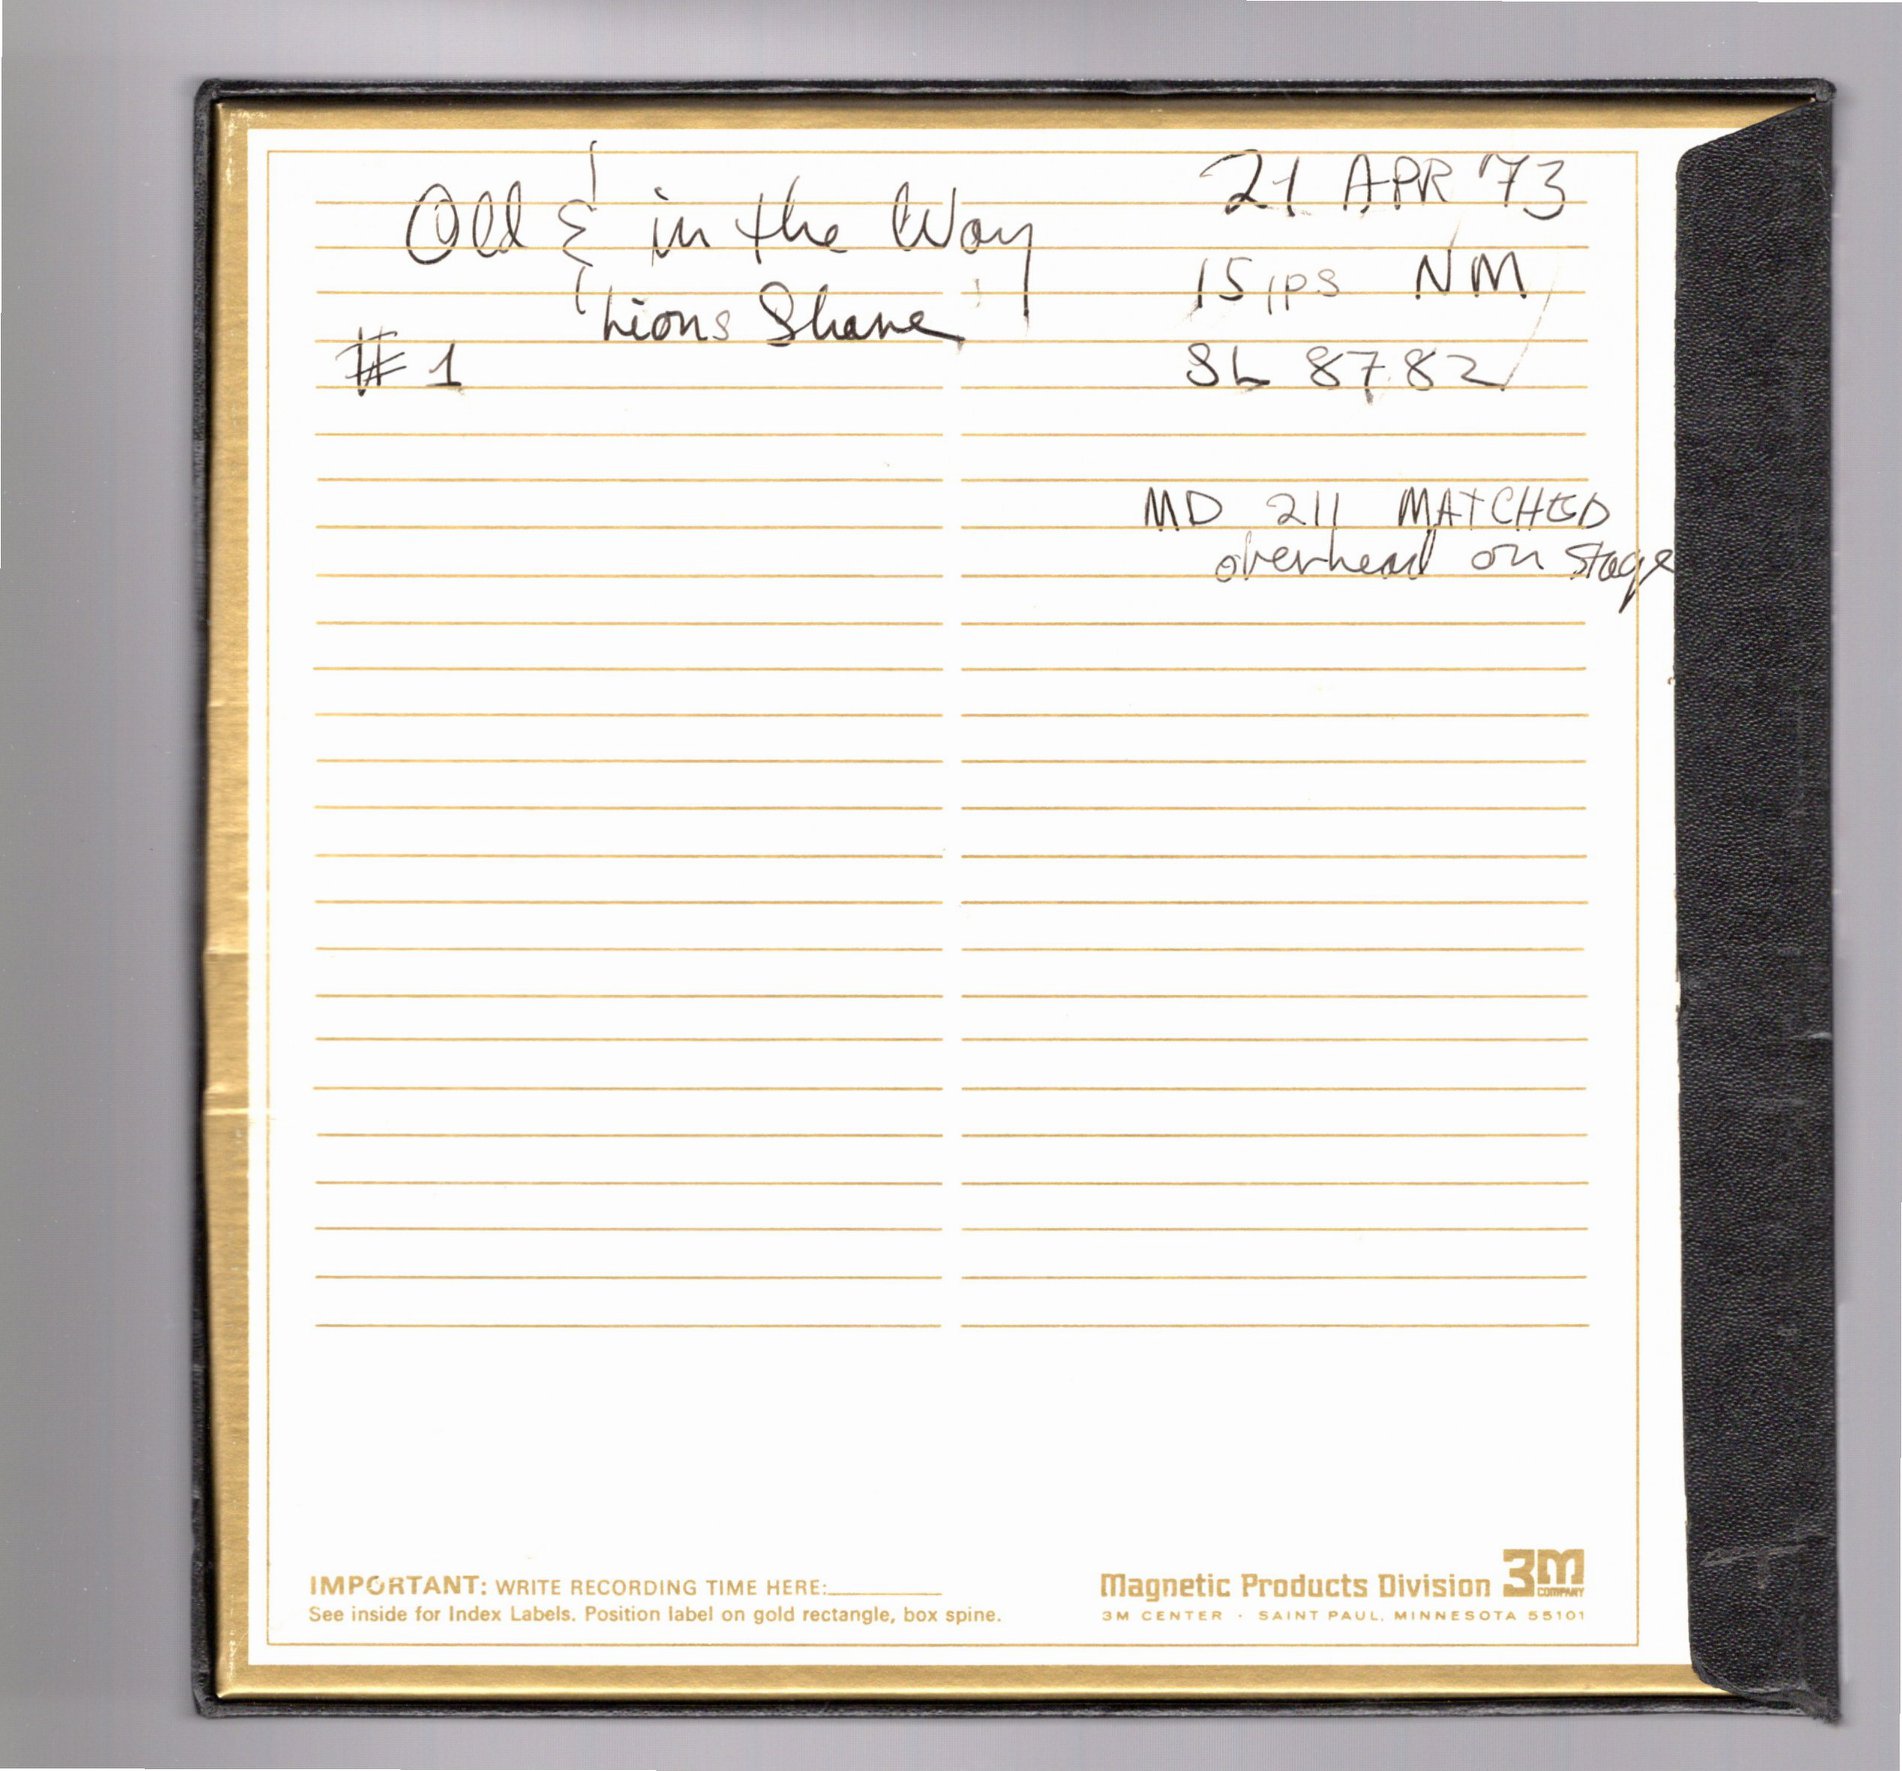 Old & in the Way
Lions Share
#1
21 APR '73
15 ips NM
SL 8782
MD 211 MATCHED
overhead on stage
IMPORTANT: WRITE RECORDING TIME HERE:
See inside for Index Labels. Position label on gold rectangle, box spine.
Magnetic Products Division 3M COMPANY
3M CENTER · SAINT PAUL, MINNESOTA 55101